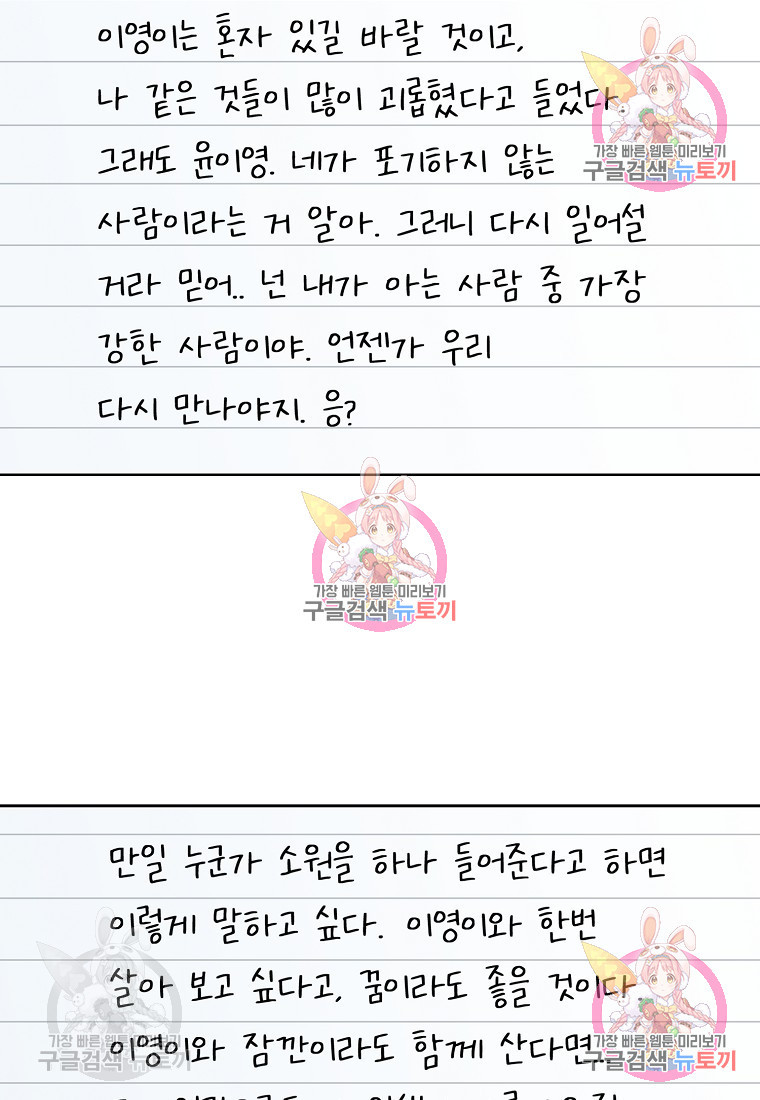 이영이는 혼자 있길 바랄 것이고,
나 같은 것들이 많이 괴롭혔다고 들었다
그래도 윤이영. 네가 포기하지 않는
사람이라는 거 알아. 그러니 다시 일어설
거라 믿어.. 넌 내가 아는 사람 중 가장
강한 사람이야. 언젠가 우리
다시 만나야지. 응?
가장 빠른 웹툰 미리보기
구글검색 뉴토끼
가장 빠른 웹툰 미리보기
구글검색 뉴토끼
만일 누군가 소원을 하나 들어준다고 하면
이렇게 말하고 싶다. 이영이와 한번
살아 보고 싶다고, 꿈이라도 좋을 것이다.
이영이와 잠깐이라도 함께 산다면...
가장 빠른 웹툰 미리보기
구글검색 뉴토끼
가장 빠른 웹툰 미리보기
구글검색 뉴토끼